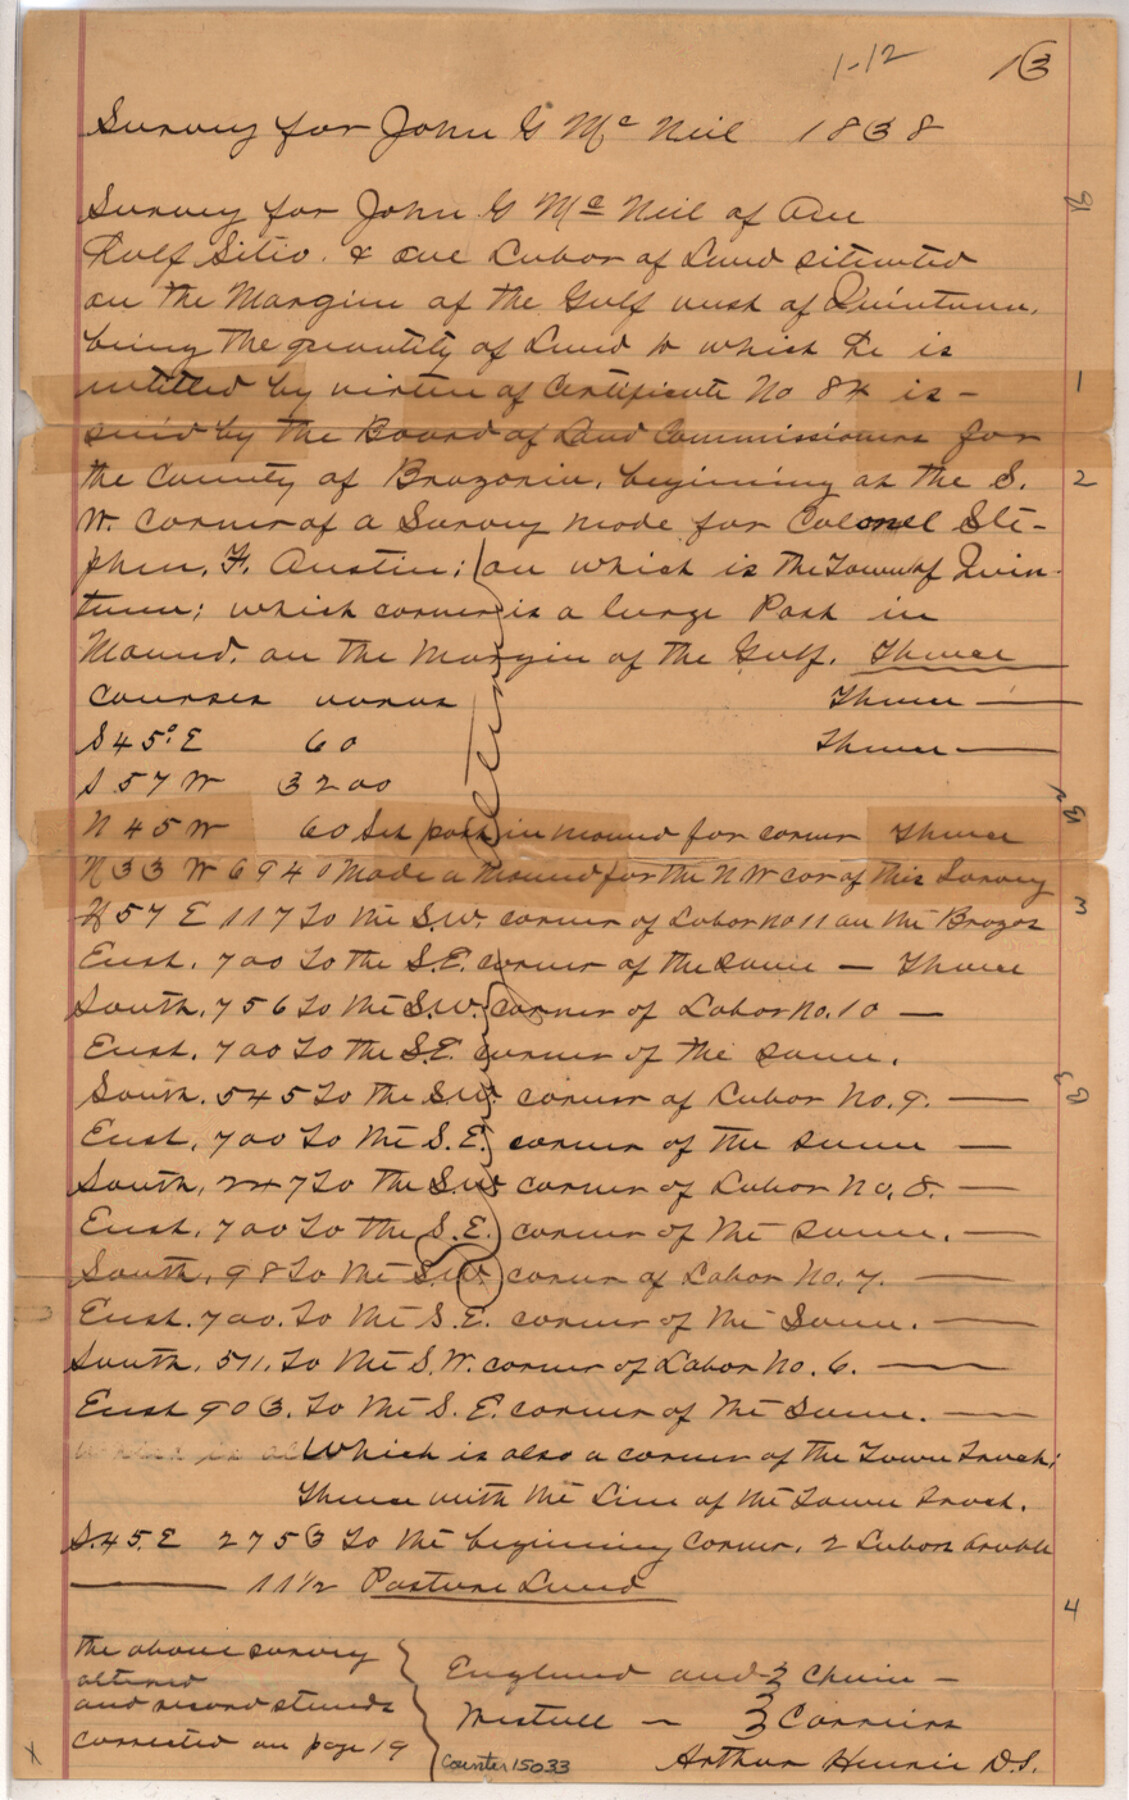 1-12 13
Survey for John G Mc Neil 1838
B
Survey for John G Mc Neil of One
Half Sitio. & one Labor of Land situated
on the Margin of the Gulf west of Quintana,
being the quantity of Land to which He is
entitled by virtue of Certificate No 84 is-
1
sued by the Board of Land Commissioners for
the County of Brazoria, begining at the S.
2
W. corner of a Survey made for Colonel Ste-
phen. F. Austin; on which is the Town of Quin-
tana; which corner is a large Post in
Mound. on the Margin of the Gulf. Thence
Courses varas Thence —
S 45° E 60 Thence —
S 57 W 3200
N 45 W 60 Set post in mound for corner Thence
N 33 W 6940 Made a Mound for the N W cor of this Survey
N 57 E 117 To the S.W. corner of Labor no 11 on the Brazos
3
East. 700 To the S.E. corner of the same — Thence
South. 756 To the S.W. corner of Labor No. 10 —
East. 700 To the S.E. corner of the same.
South. 545 To the S.W. corner of Labor No. 9. —
East. 700 To the S.E. corner of the same —
South. 247 To the S.W. corner of Labor No. 8. —
East. 700 To the S.E. corner of the same. —
South. 98 To the S.W. corner of Labor No. 7. —
East. 700. To the S.E. corner of the Same. —
South. 511. To the S.W. corner of Labor No. 6. —
East 903. To the S.E. corner of the Same. —
Which is also a corner of the Town Tract;
Thence with the Line of the Town Tract.
S. 45. E 2753 To the beginning Corner. 2 Labors Arable
— 11 1/2 Pasture Land
4
The above survey
altered
and record stands
corrected on page 19
England and } Chain —
— } Carriers
Arthur Henrie D.S.
Counter 15033
x